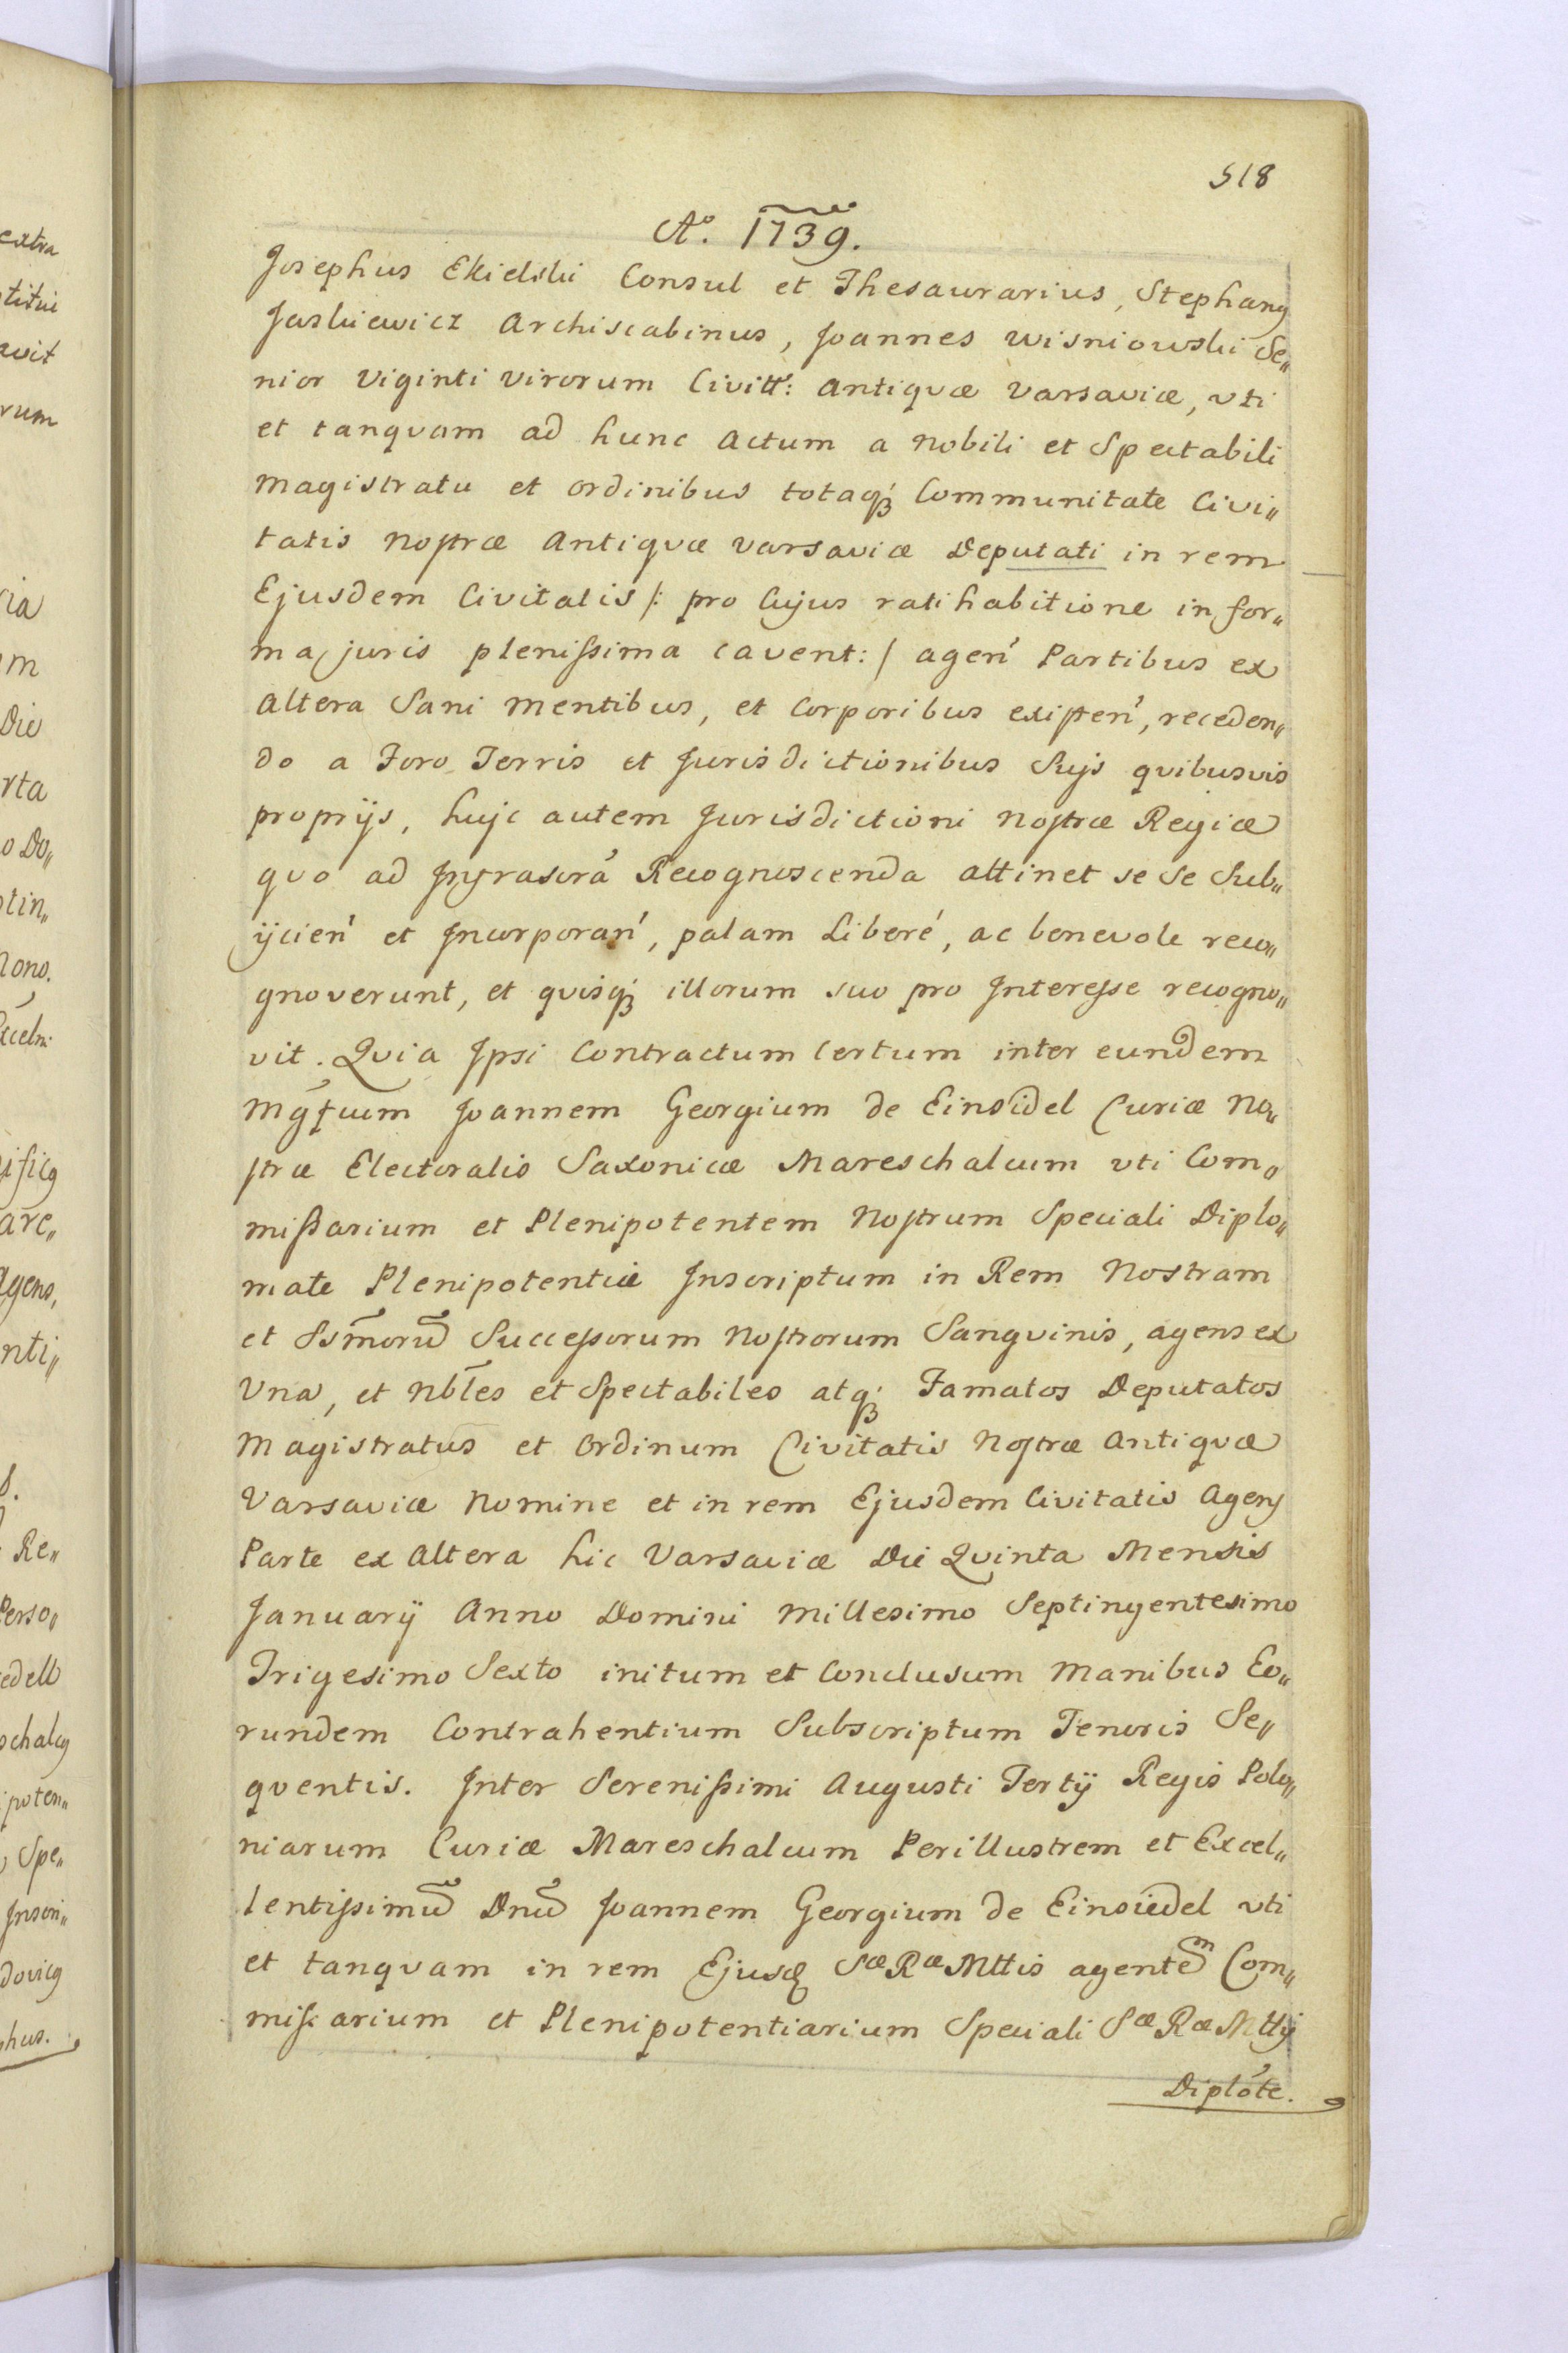 518
Aº. 1739.
Josephus Ekielski Consul et Thesaurarius, Stephanꝯ
Jaskiewicz Archiscabinus, Joannes Wisniowski Se„
nior Viginti Virorum Civitt: Antiqvæ Varsaviæ, vti
et tanqvam ad hunc Actum a Nobili et Spectabili
Magistratu et Ordinibus totaq; Communitate Civi„
tatis Nostræ Antiqvæ Varsaviæ Deputati in rem
Ejusdem Civitatis /: pro Cujus ratihabitione in for„
ma juris plenissima cavent: / agen' Partibus ex
Altera Sani Mentibus, et Corporibus existen', receden„
do a Foro Terris et Jurisdictionibus Suis qvibusvis
proprijs, hujc autem Jurisdictioni Nostræ Regiæ
qvo ad Infrascra' Recognoscenda attinet se se Sub„
ijcien' et Incorporan', palam Liberé, ac benevole reco„
gnoverunt, et qvisq; illorum suo pro Interesse recogno„
vit. Qvia Ipsi Contractum Certum inter eundem
Mgfcum Joannem Georgium de Einsidel Curiæ No„
stræ Electoralis Saxonicæ Mareschalcum vti Com„
missarium et Plenipotentem Nostrum Speciali Diplo„
mate Plenipotentiæ Inscriptum in Rem Nostram
et Ssmorũ Successorum Nostrorum Sangvinis, agens ex
Vna, et Nbles et Spectabiles atq; Famatos Deputatos
Magistratus et Ordinum Civitatis Nostræ Antiqvæ
Varsaviæ Nomine et in rem Ejusdem Civitatis Agenꝯ
Parte ex Altera hic Varsaviæ Die Qvinta Mensis
Januarij Anno Domini Millesimo Septingentesimo
Trigesimo Sexto initum et Conclusum Manibus Eo„
rundem Contrahentium Subscriptum Tenoris Se„
qventis. Inter Serenissimi Augusti Tertij Regis Polo„
niarum Curiæ Mareschalcum Perillustrem et Excel„
lentissimũ Dnũ Joannem Georgium de Einsiedel vti
et tanqvam in rem Ejusd Sæ Ræ Mttis agentem Com„
missarium et Plenipotentiarium Speciali Sæ Ræ Mttis
Diplõte.
extra
titui
avit
rum
ria
m
Die
rta
o Do„
tin„
ific9
are„
Agens,
nti„
Re„
Perso„
edell
schalc9
ipoten„
Spe„
Inscri„
dovic9
phus.